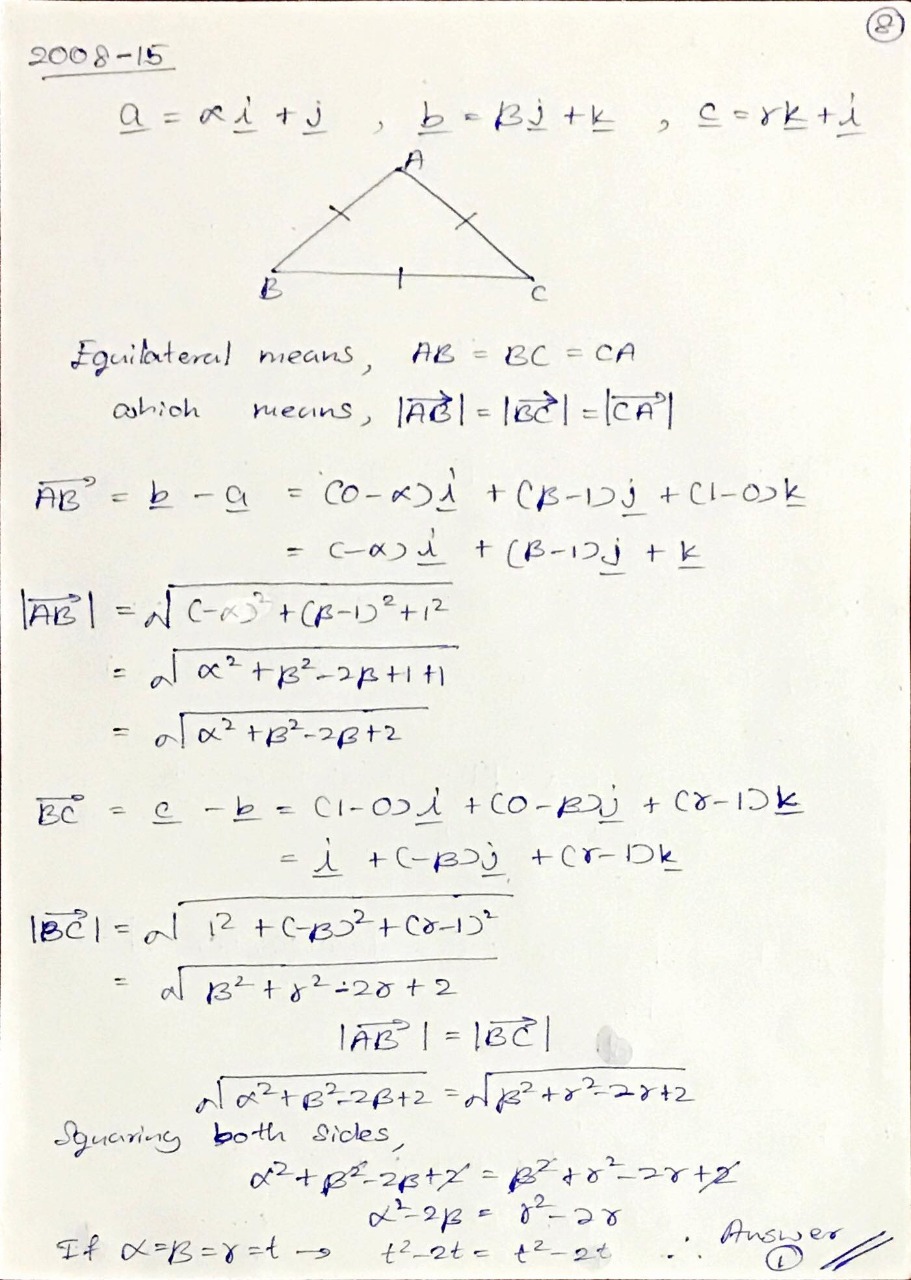 ⑧
2008-15
a = αi + j , b = βj + k , c = γk + i
A
B
C
Equilateral means, AB = BC = CA
which means, |AB→| = |BC→| = |CA→|
AB→ = b - a = (0-α)i + (β-1)j + (1-0)k
= (-α)i + (β-1)j + k
|AB→| = √((-α)² + (β-1)² + 1²)
= √(α² + β² - 2β + 1 + 1)
= √(α² + β² - 2β + 2)
BC→ = c - b = (1-0)i + (0-β)j + (γ-1)k
= i + (-β)j + (γ-1)k
|BC→| = √(1² + (-β)² + (γ-1)²)
= √(β² + γ² - 2γ + 2)
|AB→| = |BC→|
√(α² + β² - 2β + 2) = √(β² + γ² - 2γ + 2)
Squaring both sides,
α² + β² - 2β + 2 = β² + γ² - 2γ + 2
α² - 2β = γ² - 2γ
If α=β=γ=t → t² - 2t = t² - 2t ∴ Answer
①